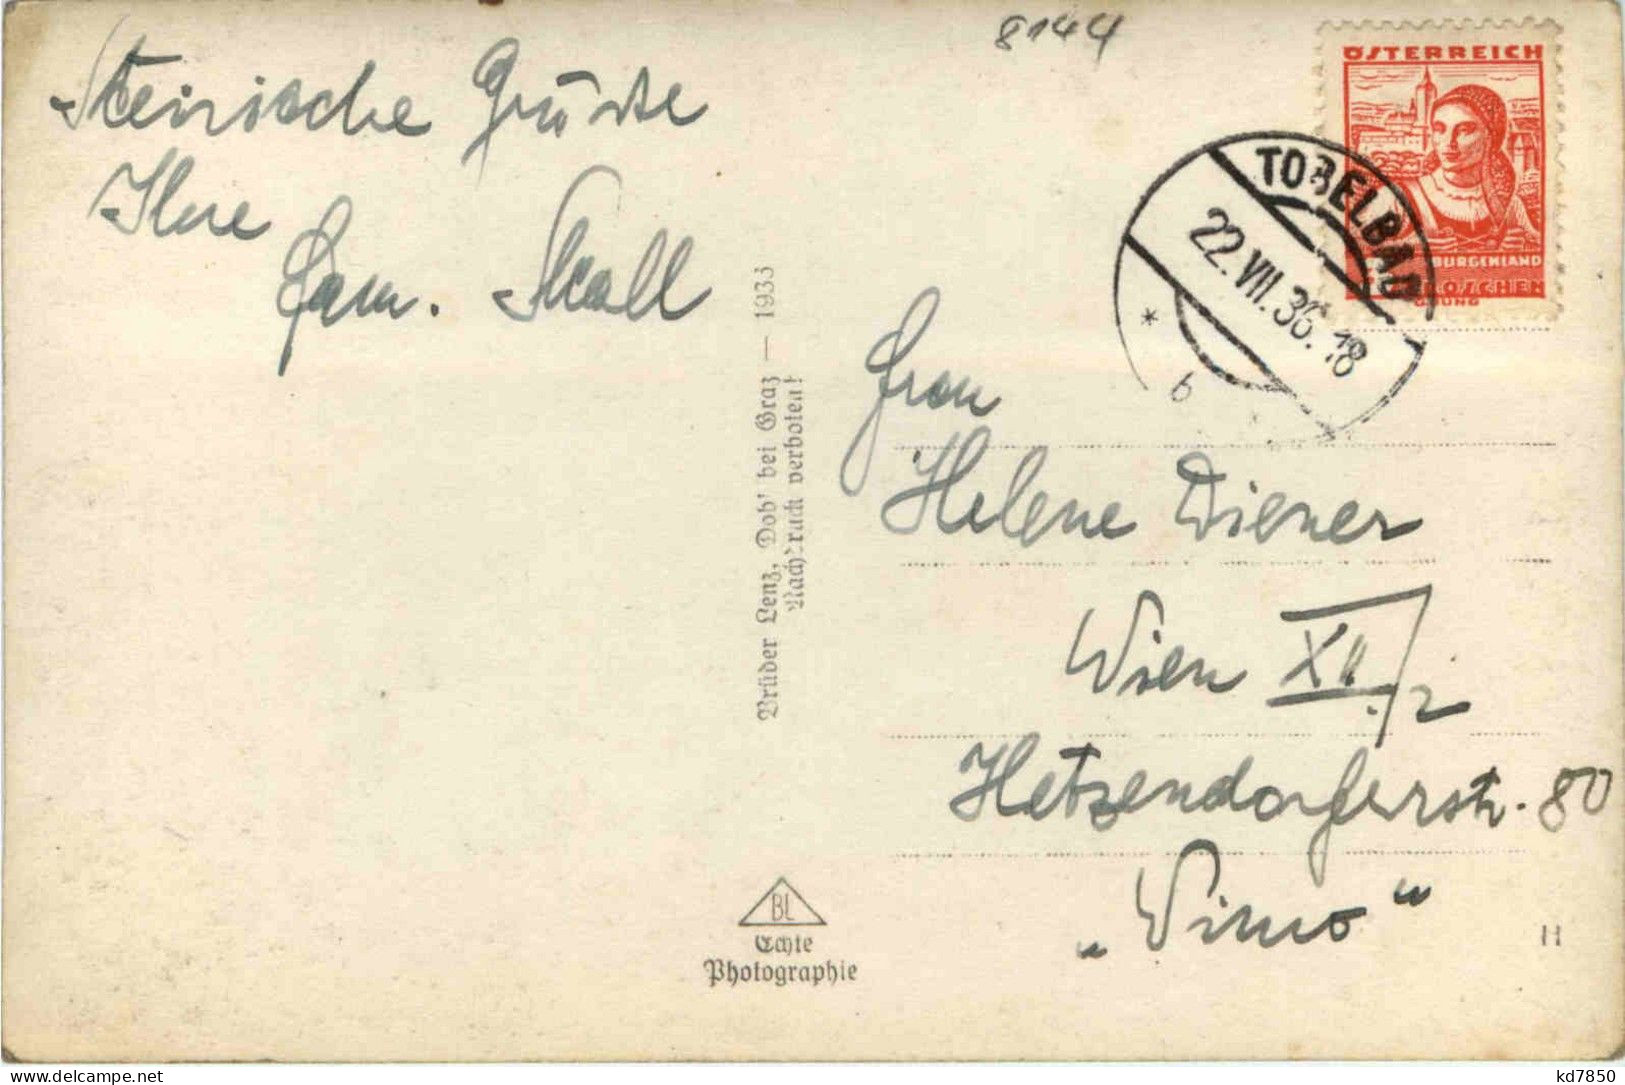 8144
Steirische Grüsse
Ihre
Fam. Skall
ÖSTERREICH
BURGENLAND
GROSCHEN
TOBELBAD
22.VII.36.18
* b *
Brüder Lenz, Dob' bei Graz — 1933
Nachdruck verboten!
Frau
Helene Wiener
Wien XII./2
Hetzendorferstr. 80
„Vimo"
BL
Echte
Photographie
H
kd7850